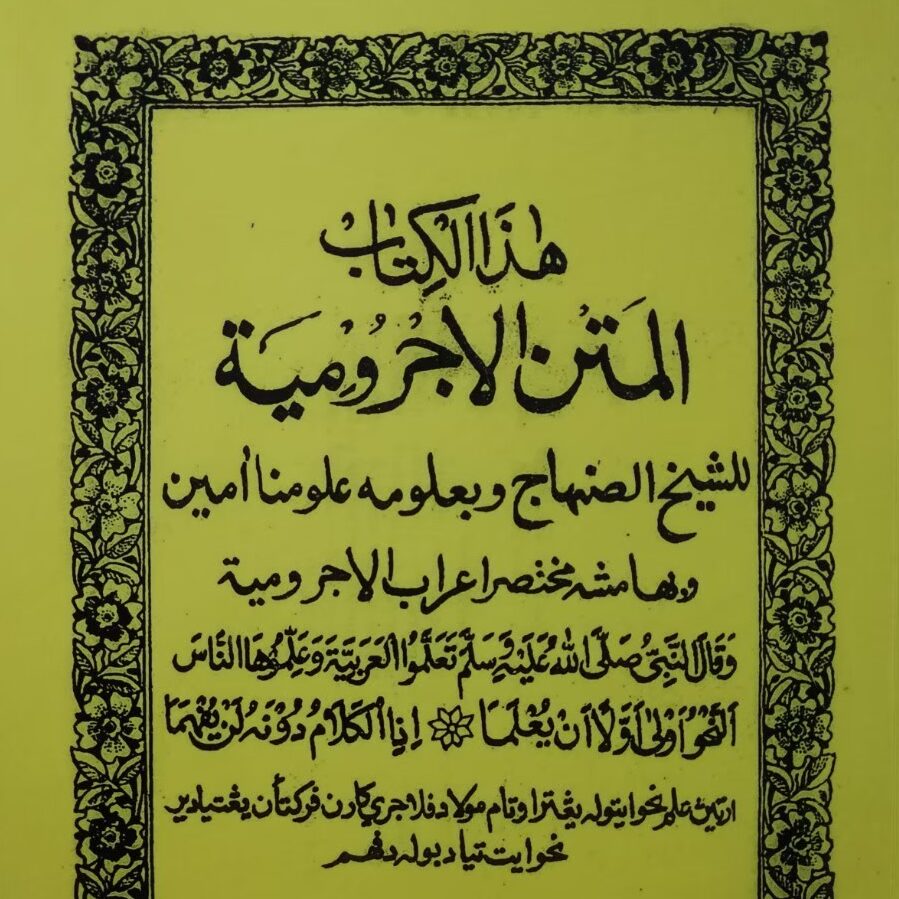 هٰذَا الكِتَاب
المَتْن الاجْرُوْمِيَة
للشيخ الصنهاج وبعلومه علومنا أمين
وبهامشه مختصر اعراب الاجرومية
وَقَالَ النَّبِيُّ صَلَّى اللّٰهُ عَلَيْهِ وَسَلَّمَ تَعَلَّمُوا العَرَبِيَّةَ وَعَلِّمُوْهَا النَّاسَ
اَلنَّحْوُ اَوْلٰى اَوَّلًا اَنْ يُعْلَمَا ❊ اِذِ الكَلَامُ دُوْنَهُ لَنْ يُفْهَمَا
ارتين علم نحو ايتوله يڠ ترا وتام مولا دفلاجري كارن فركتأن يڠ تياد ير
نحو ايت تياد بوله دفهم